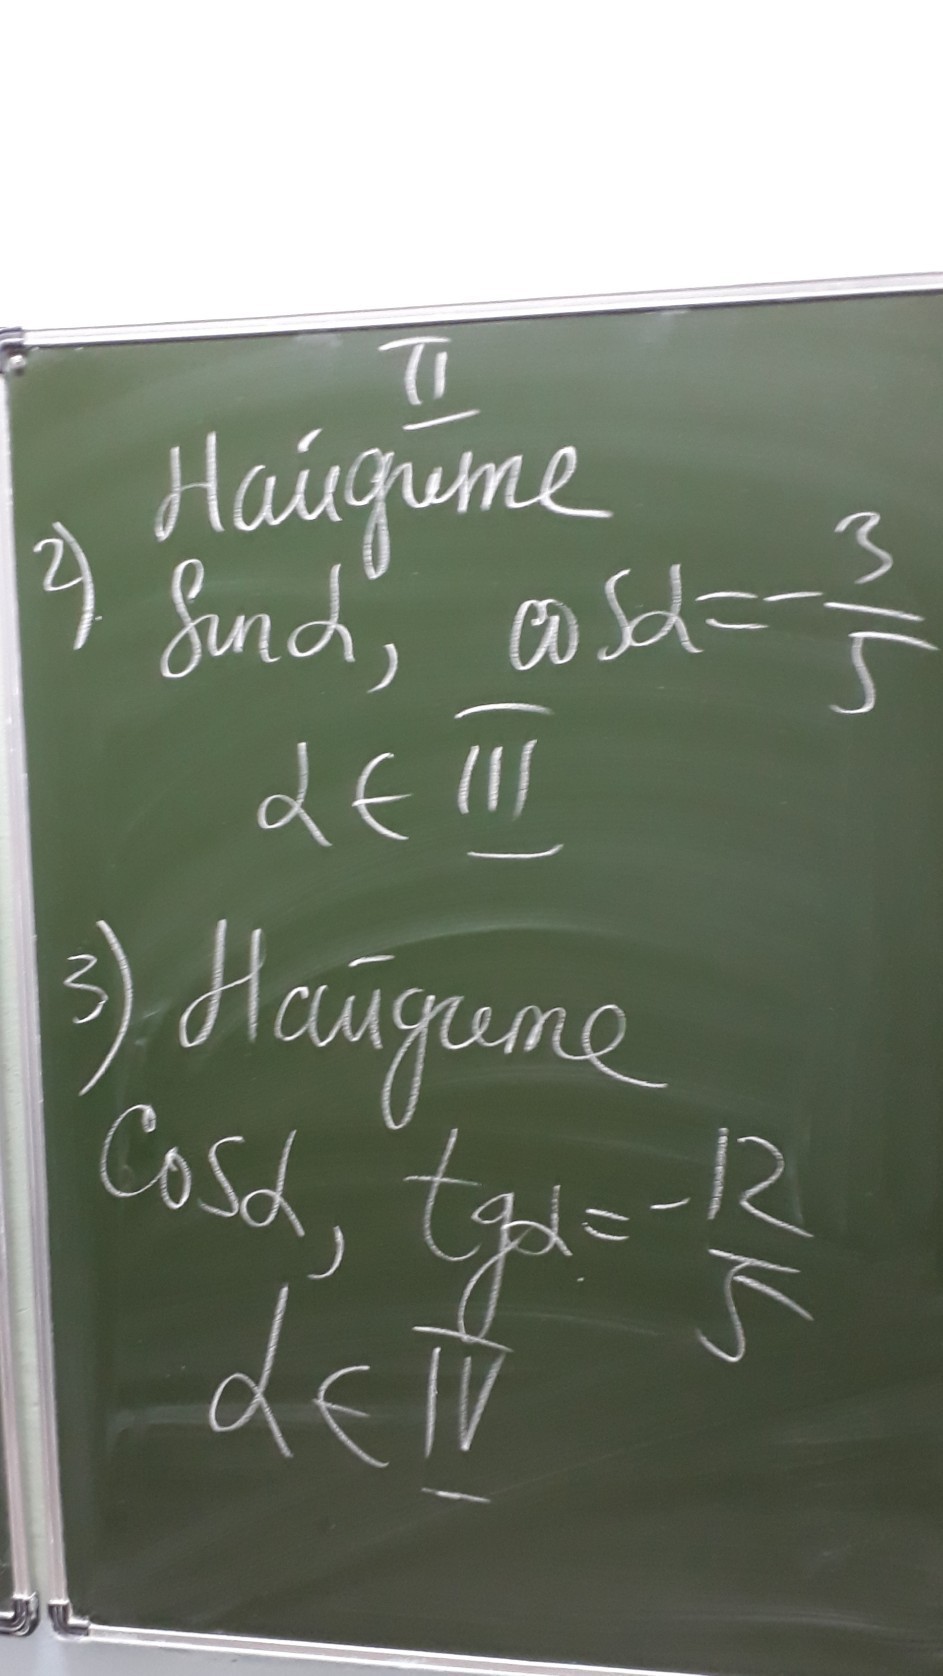 II
Найдите
2) Sinα, cosα = - 3/5
α ∈ III
3) Найдите
Cosα, tgα = - 12/5
α ∈ IV